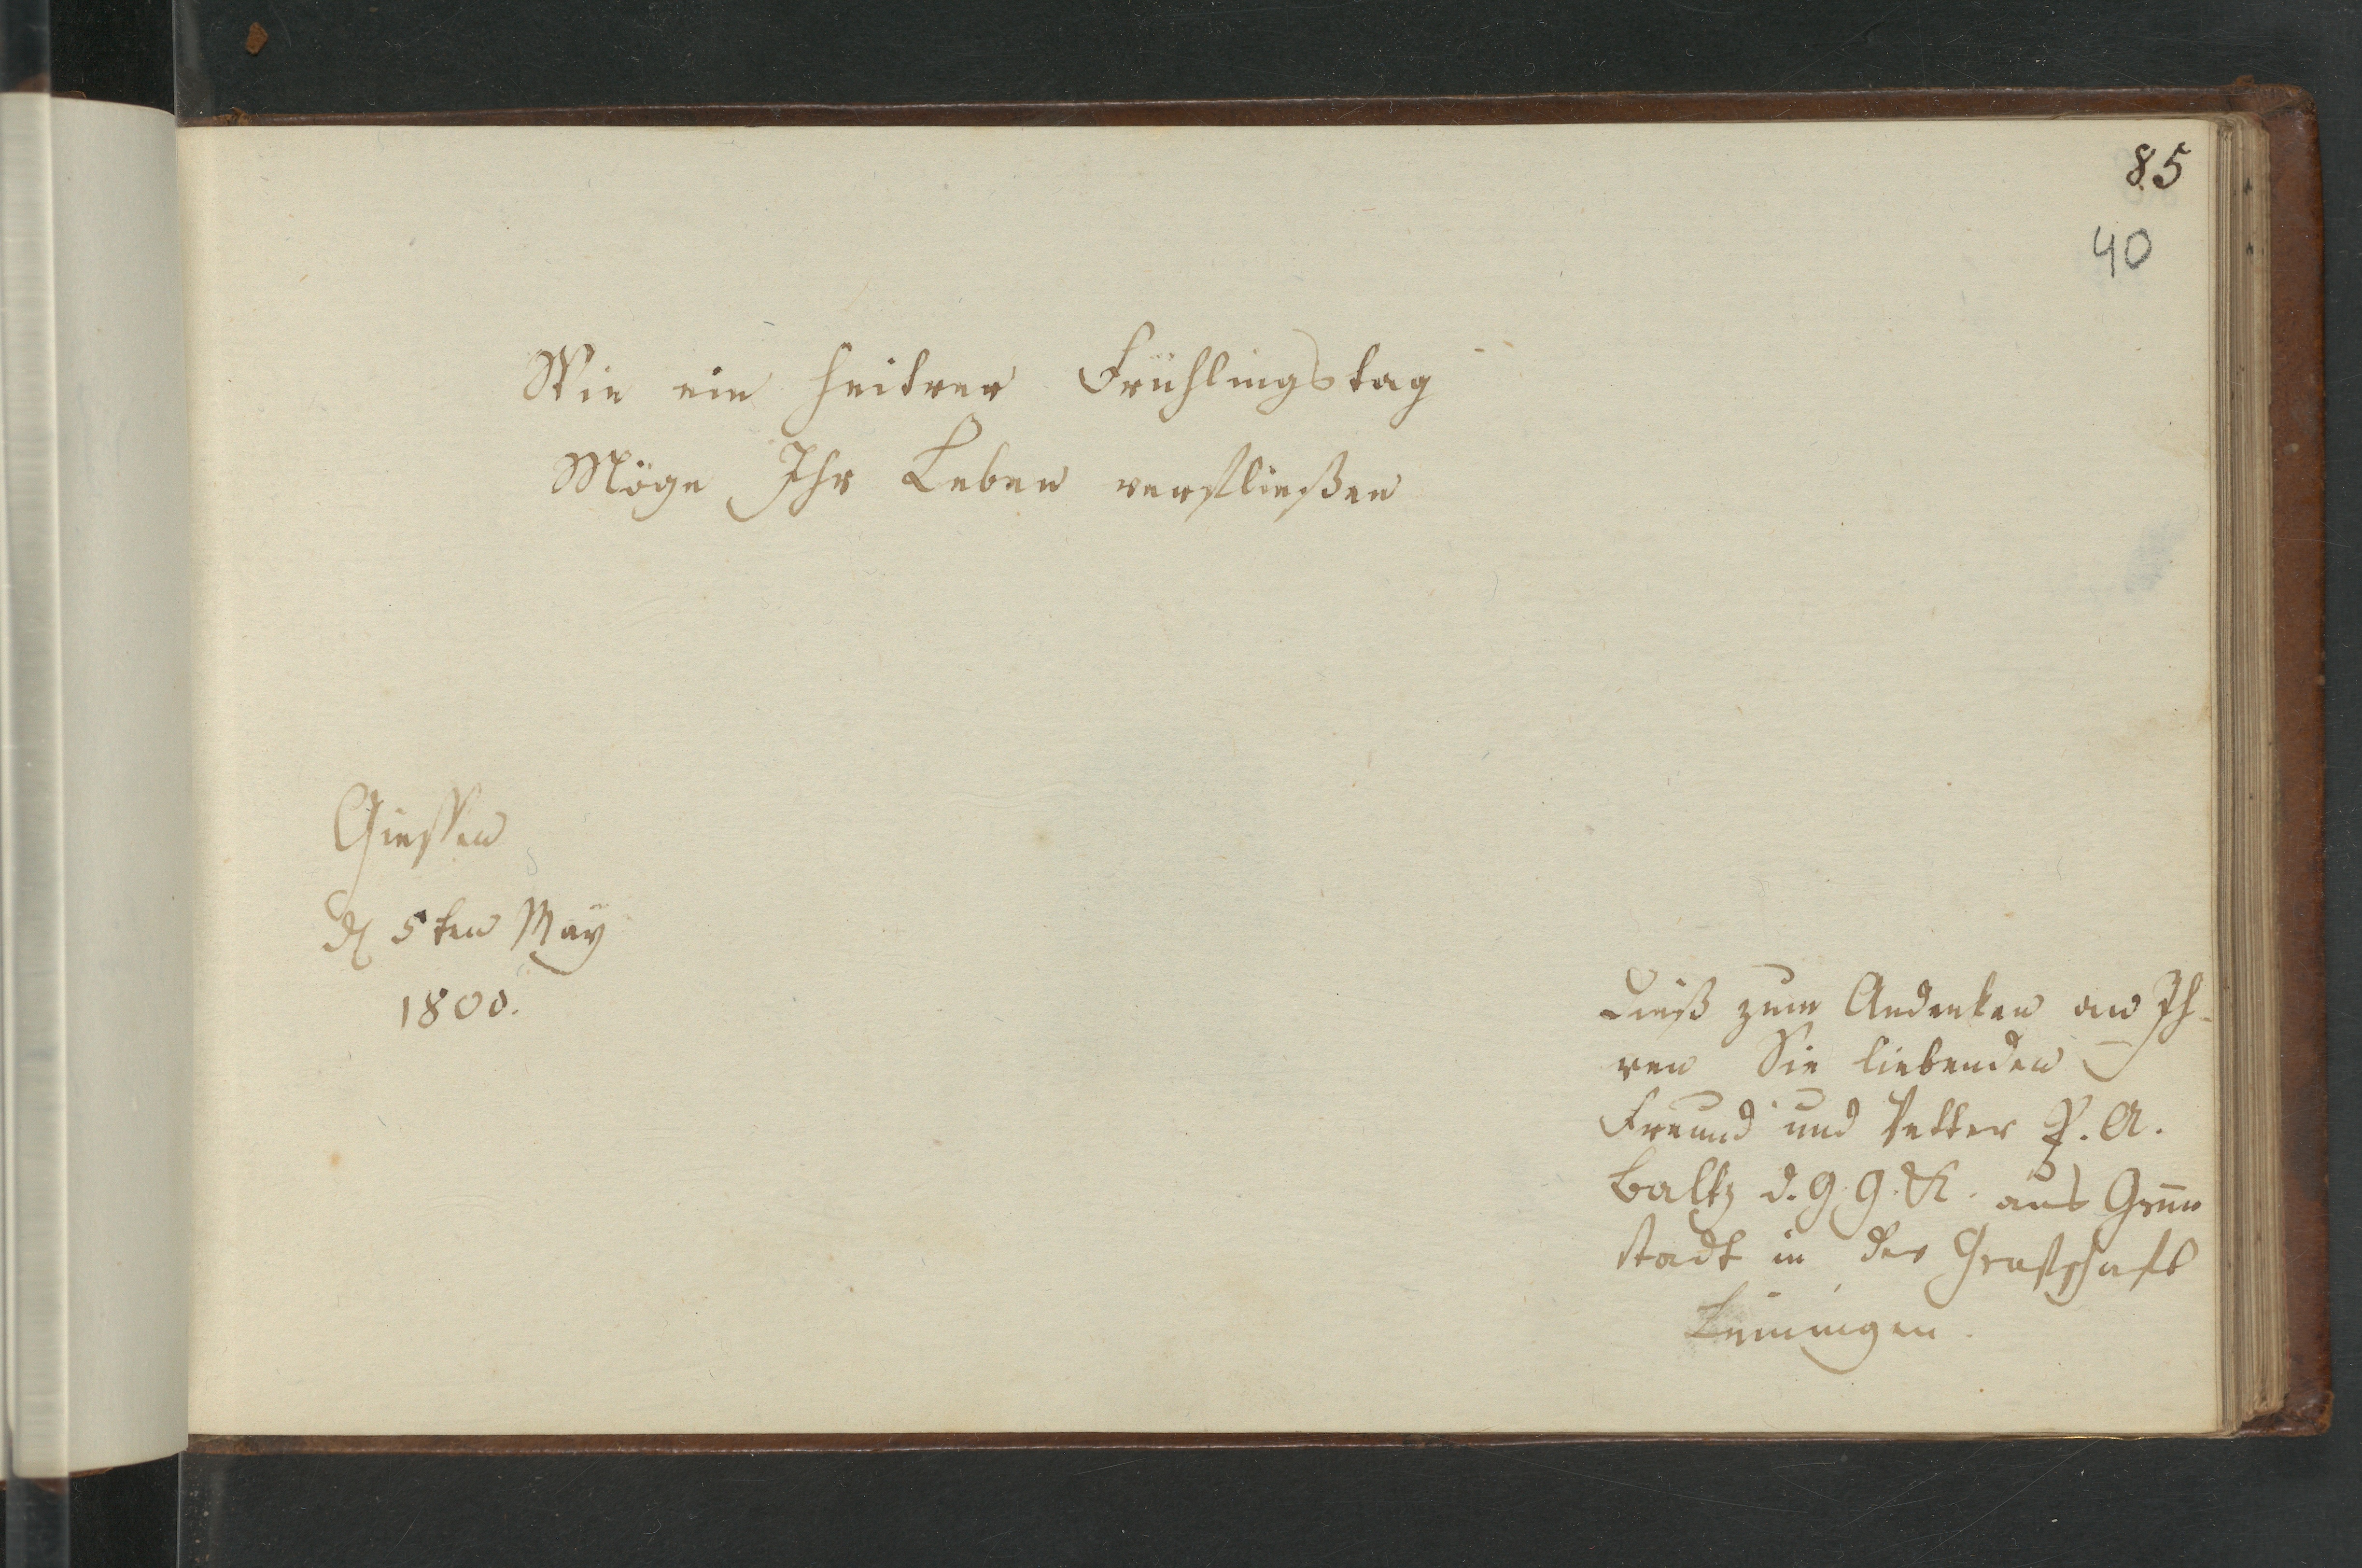 85
40
Wie ein heitrer Frühlingstag
Möge Ihr Leben verfließen
Giessen
d 5ten May
1800.
Dieß zum Andenken an Ih-
ren Sie liebenden
Freund und Vetter P. A.
Baltz d. G. G. K. aus Grün
stadt in der Grafschaft
Leiningen.